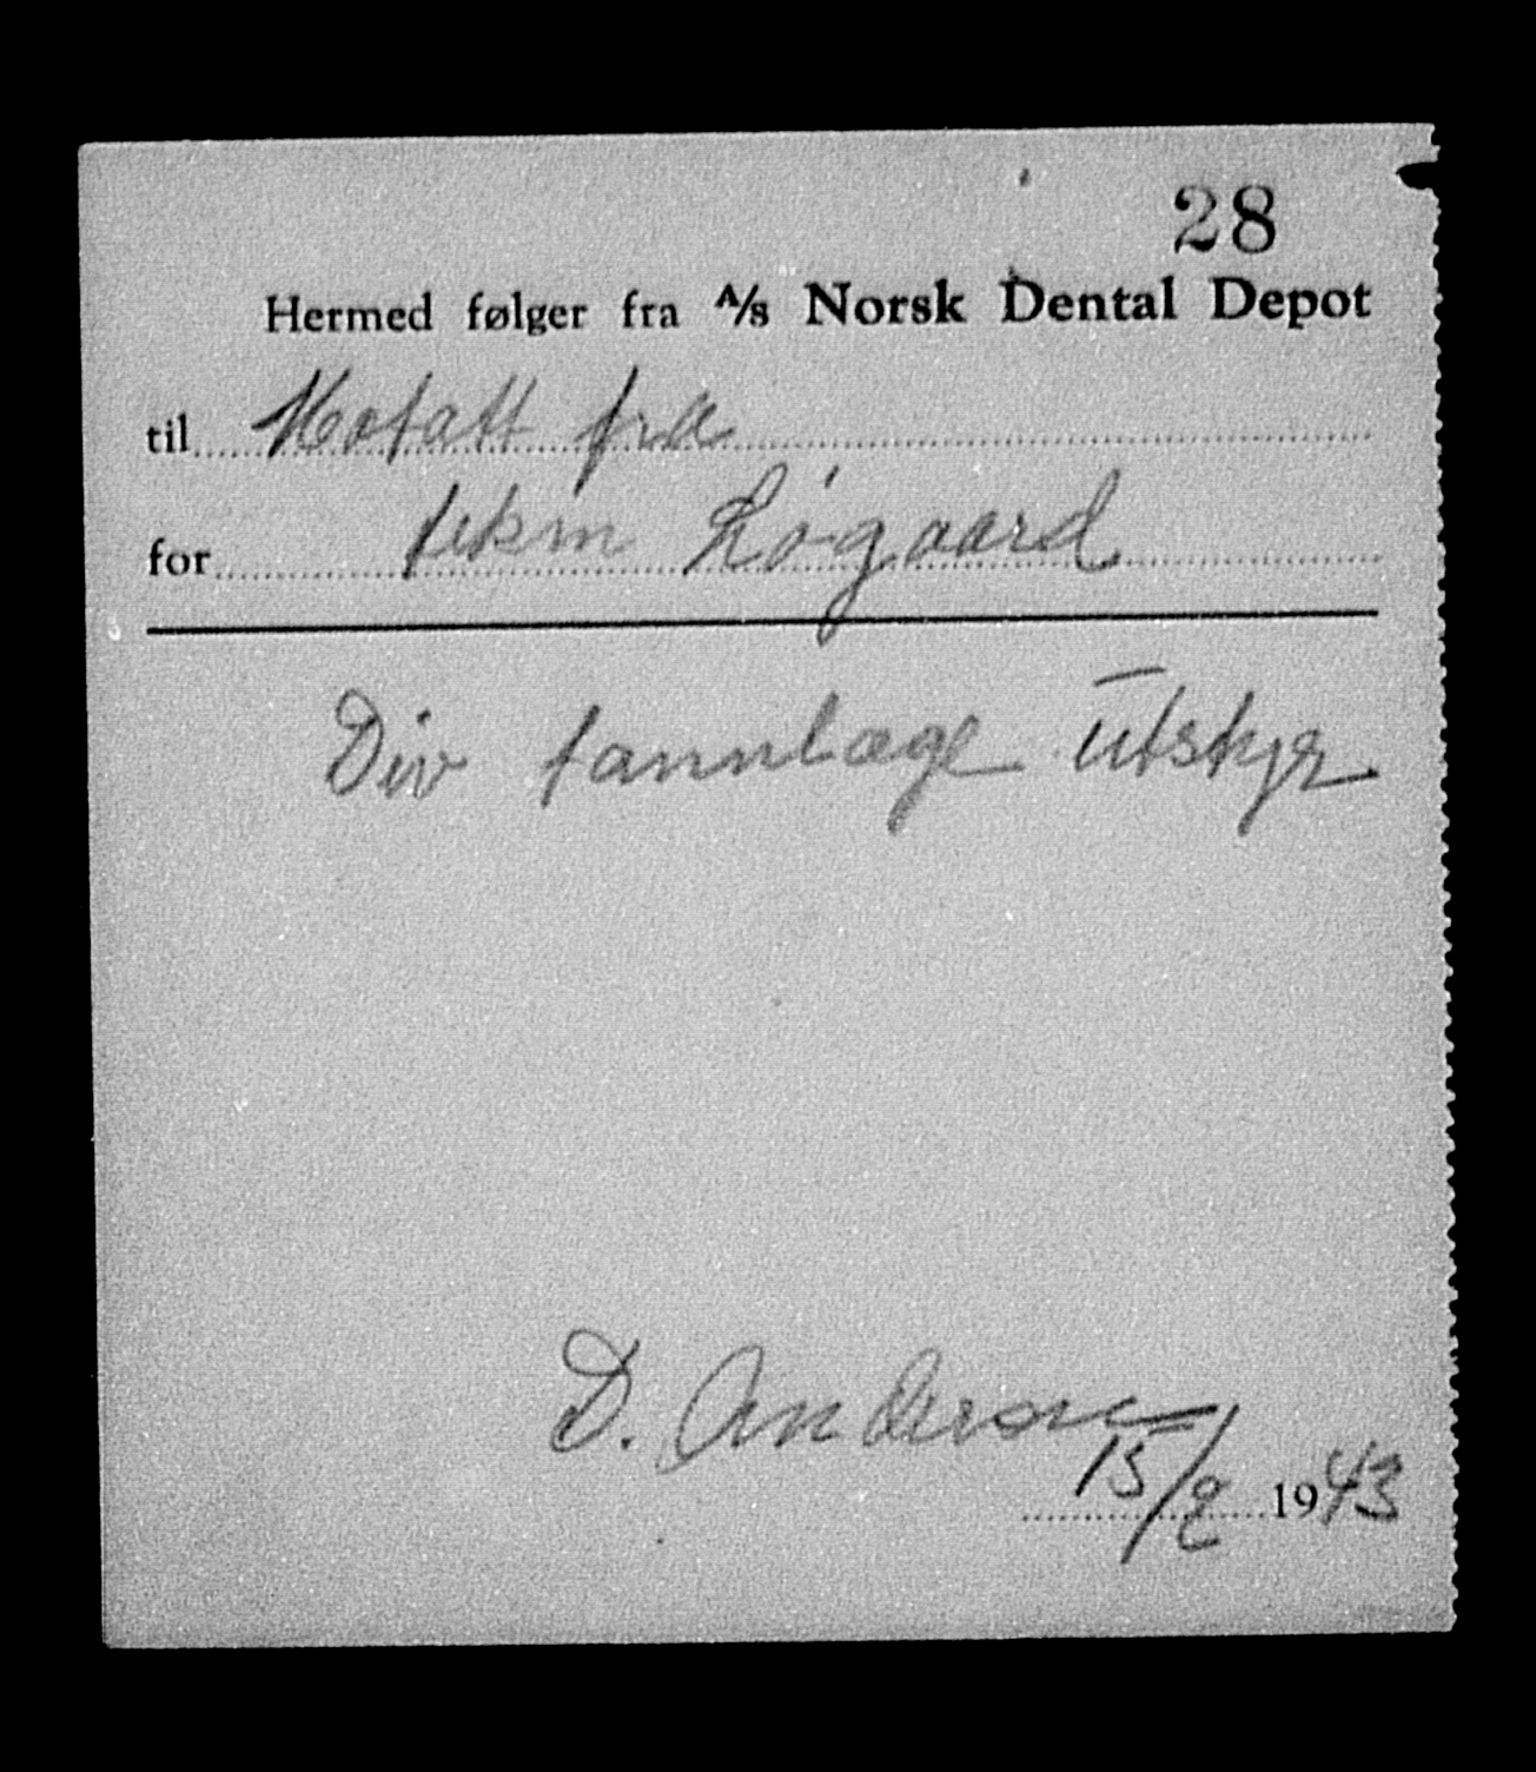 28
Hermed følger fra A/S Norsk Dental Depot
til Motatt fra
for tekn Løgaard
Div tannlæge Utstyr
D. Andersen
15/2 1943